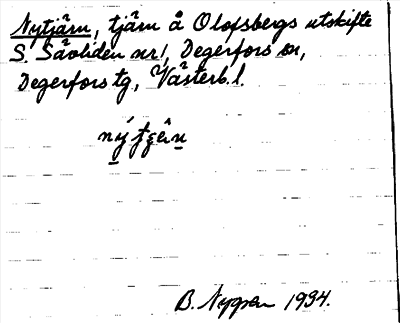 Nytjärn, tjärn å Olofsbergs utskifte
S. Sävliden nr 1, Degerfors sn,
Degerfors tg, Västerb. l.
B. Nygren 1934.